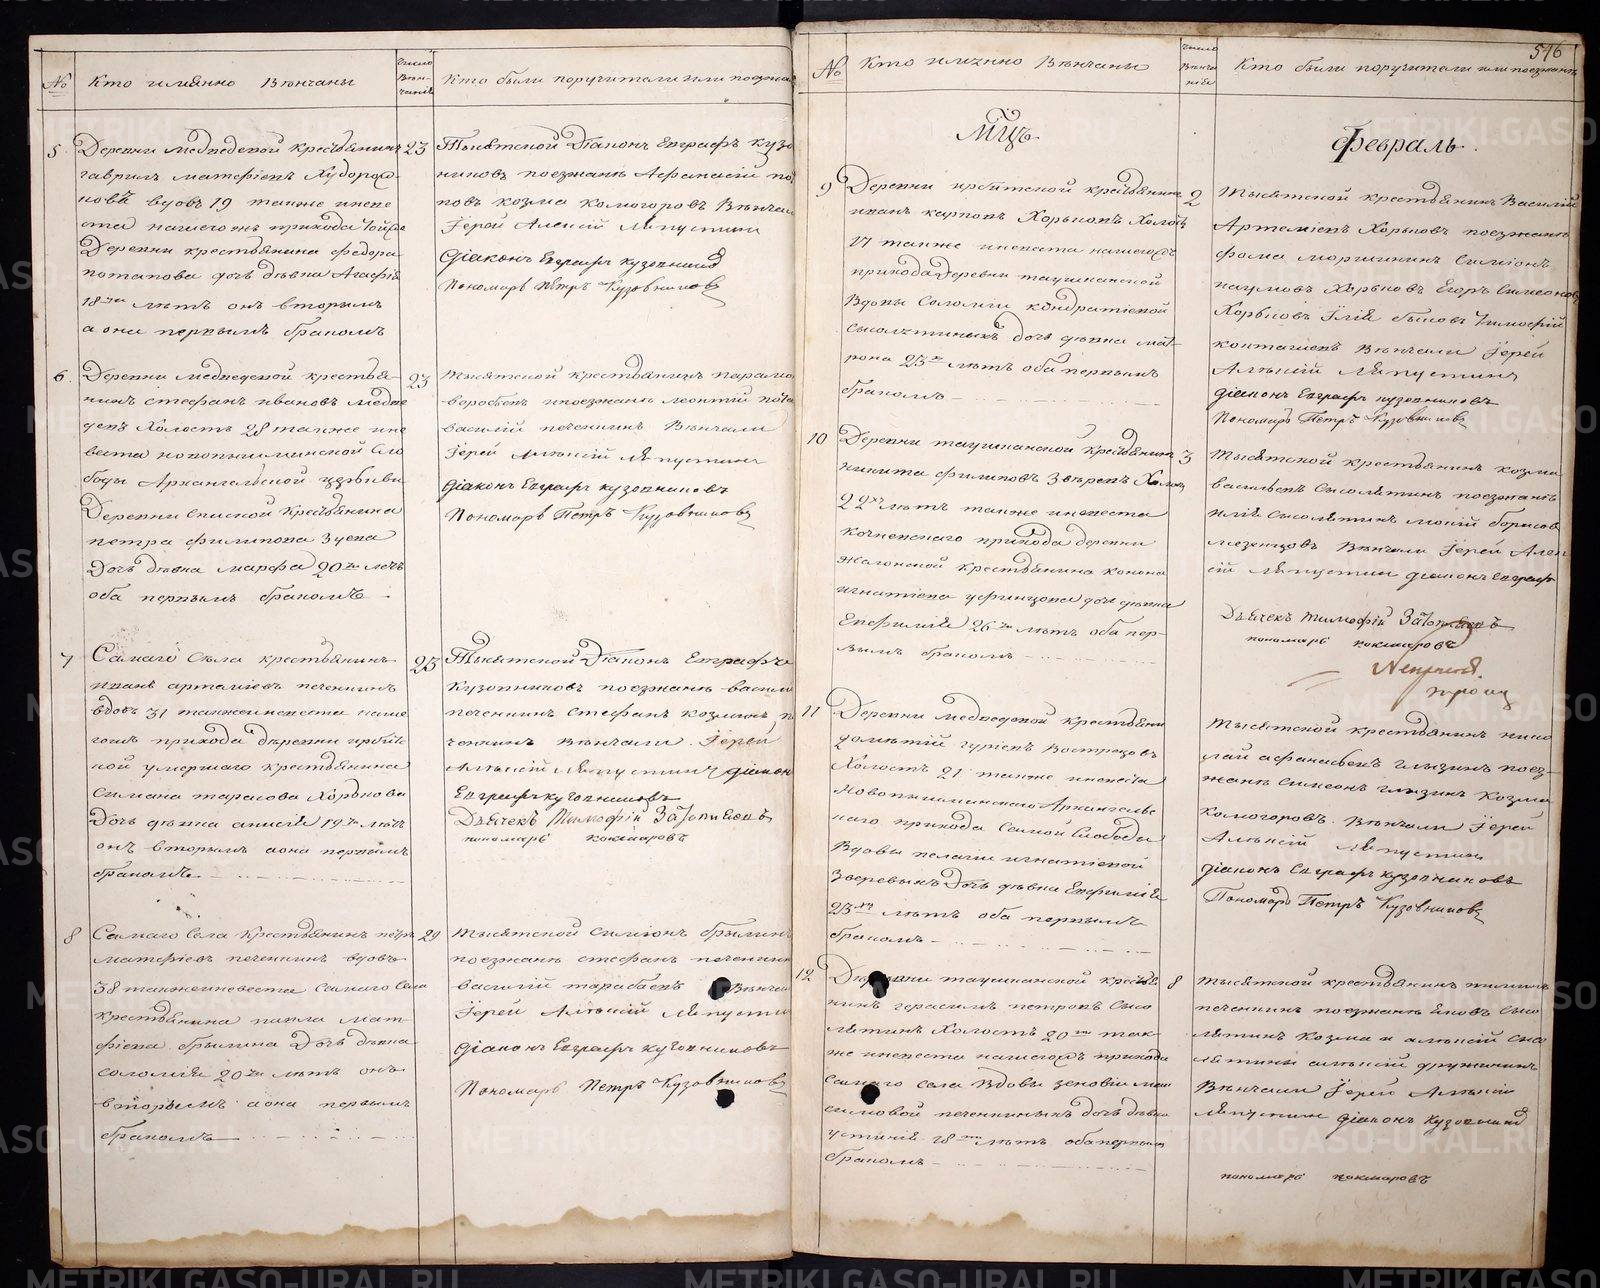 № Кто имянно Вѣнчаны
число Вѣнчанія
Кто были поручители или поезжа
5 Деревни медведевой крестьянинъ 23
гаврилъ матфіевъ Худорож
новъ вдовъ 19 также неве
ста нашегожъ прихода
Деревни крестьянина федора
потапова дочь дѣвка Агафія
18 лѣтъ онъ вторымъ
а она первымъ бракомъ
Тысятской Діаконъ Евграфъ кузо
вниковъ поезжанѣ Афанасій по
повъ козма комогоровъ Вѣнчали
Іерей Алексій Ляпустинъ
діаконъ Евграфъ кузовников
Пономарь Петръ Кузовниковъ
6 Деревни медведевой крестья- 23
нинъ стефанъ ивановъ медве
девъ Холостъ 28 также не
веста новопышминской сло
боды Архангельской церкви
Деревни крестьянина
петра филипова зуева
Дочь дѣвка марфа 20 лѣтъ
оба первымъ бракомъ
Тысятской крестьянинъ
воробьевъ ипоезжанѣ леонтій
василій печенкинъ Вѣнчали
Іерей Алексій Ляпустинъ
діаконъ Евграфъ кузовниковъ
Пономарь Петръ Кузовниковъ
7 Самаго села крестьянинъ 23
иванъ артемiевъ печенкинъ
вдовъ 31 также невеста наше
гожъ прихода деревни ирбит
кой умершаго крестьянина
симана тарасова Хорькова
Дочь дѣвка анисія 19 лѣтъ
онъ вторымъ аона первымъ
бракомъ
Тысятской Діаконъ Евграфъ
Кузовниковъ поезжанѣ васили
печенкинъ Стефанъ козминъ п
ченкинъ вѣнчали Іерей
Алексій Ляпустинъ діаконъ
Евграфъ кузовниковъ
Дьячекъ Тимофій
пономарь кокшаровъ
8 Самаго села Крестьянинъ петръ 29
матфіевъ печенкинъ вдовъ
38 также невеста самаго села
крестьянина павла мат
фіева брылина Дочь дѣвка
соломія 20 лѣтъ онъ
вторымъ аона первымъ
бракомъ
Тысятской симіонъ брылинъ
поезжанѣ стефанъ печенкин
василій тарабаевъ Вѣнчали
Іерей Алексій Ляпустин
діаконъ Евграфъ кузовниковъ
Пономарь Петръ Кузовниковъ
516
№ Кто имянно Вѣнчаны
число Вѣнчанія
Кто были поручители или поезжанѣ
Мцъ Февраль.
9 Деревни ирбитской крестьянинъ 2
иванъ карповъ Хорьковъ Холостъ
17 также невеста нашегожъ
прихода Деревни таушканской
Вдовы Соломіи кондратіевой
Сысолятиныхъ дочь дѣвка мат
рона 23 лѣтъ оба первымъ
бракомъ
Тысятской крестьянинъ Василій
Артеміевъ Хорьковъ поезжанѣ
фома Симіонъ
наумовъ Хорьковъ Егоръ Симеоновъ
Хорьковъ Ілія быковъ Тимофій
Вѣнчали Іерей
Алексій Ляпустинъ
діаконъ Евграфъ кузовниковъ
Пономарь Петръ Кузовниковъ
10 Деревни таушканской Крестьянинъ 3
никита филиповъ Зверевъ Холостъ
22 лѣтъ также невеста
кочневскаго прихода деревни
крестьянина конона
игнатіева уфинцова дочь дѣвка
Евфимія 26 лѣтъ оба пер-
вымъ бракомъ
Тысятской крестьянинъ козма
васильевъ Сысолятинъ поезжанѣ
илія сысолятинъ борисов
мезенцовъ Вѣнчали Іерей Алек
сій Ляпустин діаконъ Евграфъ
Дьячекъ Тимофій
пономарь кокшаровъ
11 Деревни медведевой крестьянинъ
дометій гуріевъ Вострецовъ
Холостъ 21 также невеста
Новопышминскаго Архангельс
каго прихода Самой Слободы
Вдовы пелагіи игнатіевой
Зверевыхъ Дочь дѣвка Евфимія
23 лѣтъ оба первымъ
бракомъ
Тысятской крестьянинъ нико
лай афанасьевъ глызинъ поез-
жанѣ симеонъ глызинъ Козма
комогоровъ. Вѣнчали Іерей
Алексій Ляпустинъ
діаконъ Евграфъ кузовниковъ
Пономарь Петръ Кузовниковъ
12 Деревни таушканской кресть 8
нинъ герасимъ петровъ Сысо
лятинъ Холостъ 20 так-
же невеста нашегожъ прихода
Самаго села Вдовы зеновіи мак
симовой печенкиныхъ дочь дѣвка
устинія 18 лѣтъ оба первымъ
бракомъ
Тысятской крестьянинъ
печенкинъ поезжанѣ Яковъ Сысо
лятинъ Козма и алексій сысо
лятины алексій дружининъ
Вѣнчали Іерей Алексій
Ляпустин діаконъ Кузовников
пономарь кокшаровъ
METRIKI.GASO-URAL.RU